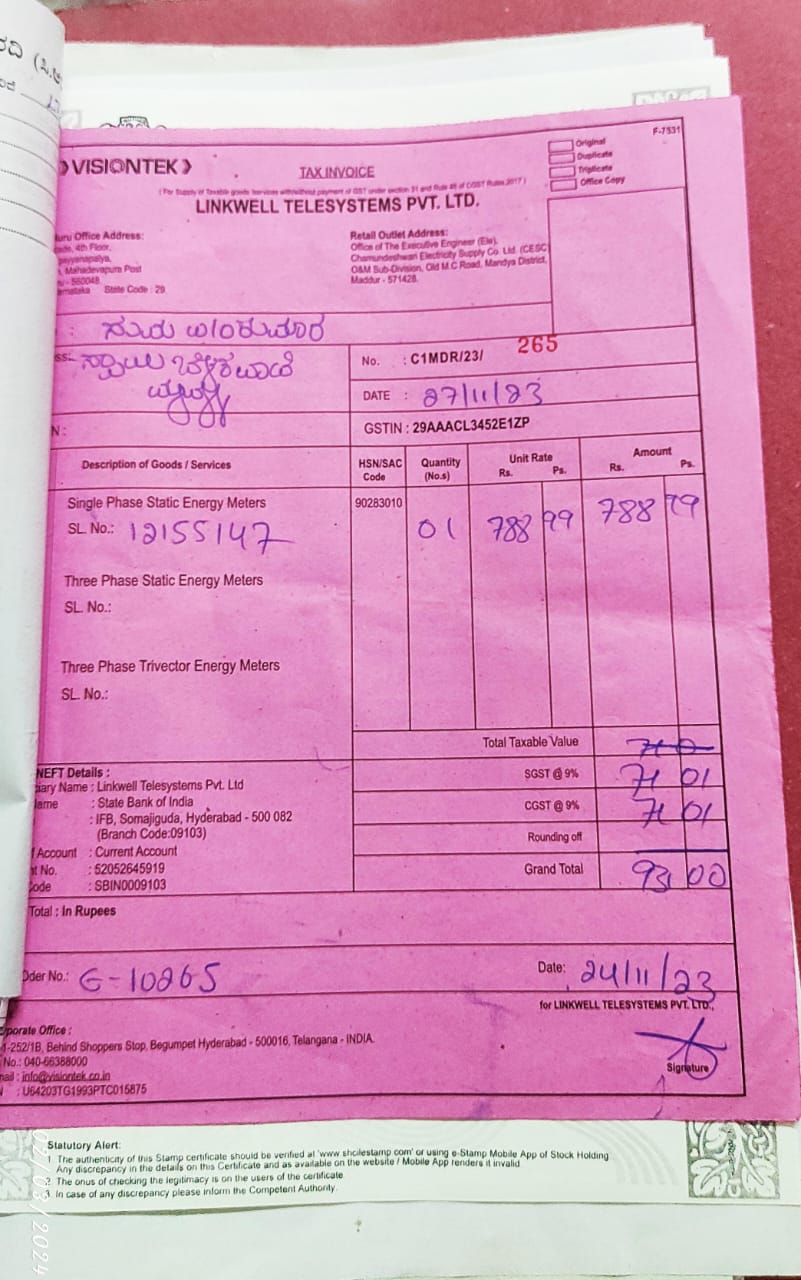 VISIONTEK
TAX INVOICE
F-7531
Original
Duplicate
Triplicate
Office Copy
LINKWELL TELESYSTEMS PVT. LTD.
Office Address:
4th Floor,
Mahadevapura Post
- 560048
State Code : 29
Retail Outlet Address:
Office of The Executive Engineer (Ele),
Chamundeshwari Electricity Supply Co. Ltd. (CESC)
O&M Sub-Division, Old M.C Road, Mandya District,
Maddur - 571428.
No. : C1MDR/23/ 265
DATE : 27/11/23
N :
GSTIN : 29AAACL3452E1ZP
Description of Goods / Services
HSN/SAC Code
Quantity (No.s)
Unit Rate Rs. Ps.
Amount Rs. Ps.
Single Phase Static Energy Meters 90283010
SL. No.: 12155147 01 788 99 788 99
Three Phase Static Energy Meters
SL. No.:
Three Phase Trivector Energy Meters
SL. No.:
Total Taxable Value
NEFT Details :
SGST @ 9% 71 01
ciary Name : Linkwell Telesystems Pvt. Ltd
ame : State Bank of India
CGST @ 9% 71 01
: IFB, Somajiguda, Hyderabad - 500 082
(Branch Code:09103)
Rounding off
f Account : Current Account
t No. : 52052645919
Grand Total 931 00
ode : SBIN0009103
Total : In Rupees
der No.: G-10265
Date: 24/11/23
for LINKWELL TELESYSTEMS PVT. LTD.,
porate Office :
-252/1B, Behind Shoppers Stop, Begumpet Hyderabad - 500016, Telangana - INDIA.
No.: 040-66388000
ail : info@visiontek.co.in
: U64203TG1993PTC015875
Signature
Statutory Alert:
1. The authenticity of this Stamp certificate should be verified at 'www shcilestamp com' or using e-Stamp Mobile App of Stock Holding
Any discrepancy in the details on this Certificate and as available on the website / Mobile App renders it invalid
2. The onus of checking the legitimacy is on the users of the certificate
3. In case of any discrepancy please inform the Competent Authority.
02/03/2024